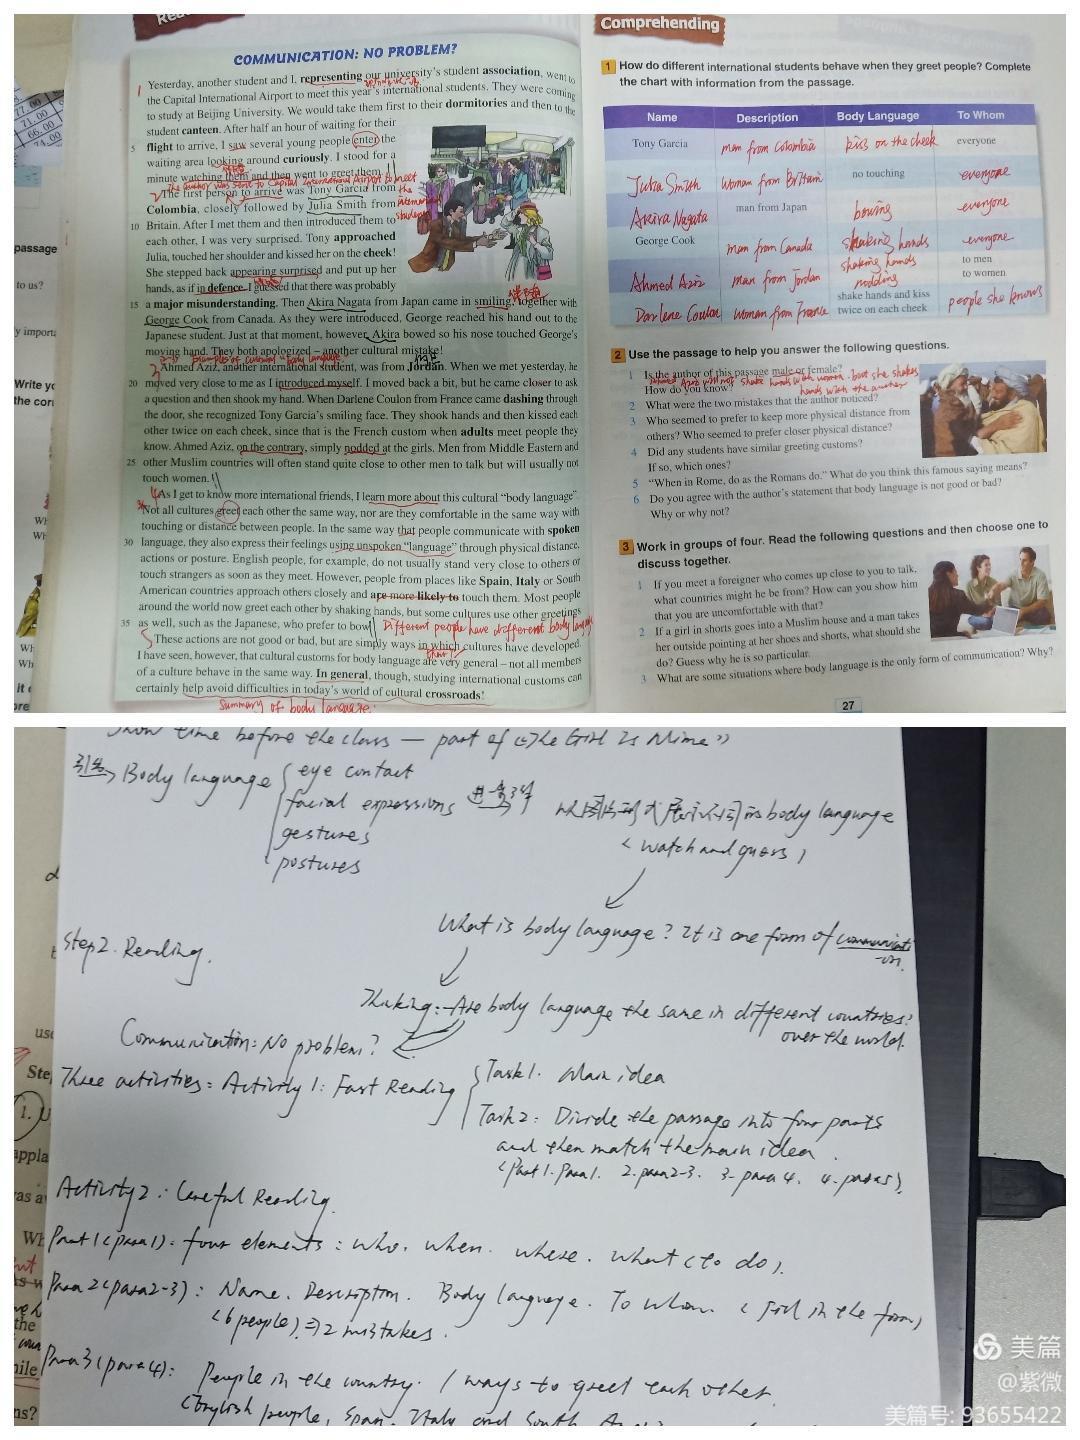 COMMUNICATION: NO PROBLEM?
1 Yesterday, another student and I, representing our university's student association, went to
the Capital International Airport to meet this year's international students. They were coming
to study at Beijing University. We would take them first to their dormitories and then to the
student canteen. After half an hour of waiting for their
5 flight to arrive, I saw several young people enter the
waiting area looking around curiously. I stood for a
minute watching them and then went to greet them.
2 The author was sent to Capital International Airport to meet the international students
The first person to arrive was Tony Garcia from
Colombia, closely followed by Julia Smith from
10 Britain. After I met them and then introduced them to
each other, I was very surprised. Tony approached
Julia, touched her shoulder and kissed her on the cheek!
She stepped back appearing surprised and put up her
hands, as if in defence. I guessed that there was probably
15 a major misunderstanding. Then Akira Nagata from Japan came in smiling, together with
George Cook from Canada. As they were introduced, George reached his hand out to the
Japanese student. Just at that moment, however, Akira bowed so his nose touched George's
moving hand. They both apologized – another cultural mistake!
examples of cultural "body language"
3 Ahmed Aziz, another international student, was from Jordan. When we met yesterday, he
20 moved very close to me as I introduced myself. I moved back a bit, but he came closer to ask
a question and then shook my hand. When Darlene Coulon from France came dashing through
the door, she recognized Tony Garcia's smiling face. They shook hands and then kissed each
other twice on each cheek, since that is the French custom when adults meet people they
know. Ahmed Aziz, on the contrary, simply nodded at the girls. Men from Middle Eastern and
25 other Muslim countries will often stand quite close to other men to talk but will usually not
touch women.
4 As I get to know more international friends, I learn more about this cultural "body language".
Not all cultures greet each other the same way, nor are they comfortable in the same way with
touching or distance between people. In the same way that people communicate with spoken
30 language, they also express their feelings using unspoken "language" through physical distance,
actions or posture. English people, for example, do not usually stand very close to others or
touch strangers as soon as they meet. However, people from places like Spain, Italy or South
American countries approach others closely and are more likely to touch them. Most people
around the world now greet each other by shaking hands, but some cultures use other greetings
35 as well, such as the Japanese, who prefer to bow. Different people have different body language
5 These actions are not good or bad, but are simply ways in which cultures have developed.
I have seen, however, that cultural customs for body language are very general – not all members
of a culture behave in the same way. In general, though, studying international customs can
certainly help avoid difficulties in today's world of cultural crossroads!
Summary of body language.
Comprehending
1 How do different international students behave when they greet people? Complete
the chart with information from the passage.
Name Description Body Language To Whom
Tony Garcia man from Colombia kiss on the cheek everyone
Julia Smith woman from Britain no touching everyone
Akira Nagata man from Japan bowing everyone
George Cook man from Canada shaking hands everyone
Ahmed Aziz man from Jordan shaking hands to men
nodding to women
Darlene Coulon woman from France shake hands and kiss
twice on each cheek people she knows
2 Use the passage to help you answer the following questions.
1 Is the author of this passage male or female?
How do you know?
Ahmed Aziz will not shake hands with women. but he shakes
hands with the author
2 What were the two mistakes that the author noticed?
3 Who seemed to prefer to keep more physical distance from
others? Who seemed to prefer closer physical distance?
4 Did any students have similar greeting customs?
If so, which ones?
5 "When in Rome, do as the Romans do." What do you think this famous saying means?
6 Do you agree with the author's statement that body language is not good or bad?
Why or why not?
3 Work in groups of four. Read the following questions and then choose one to
discuss together.
1 If you meet a foreigner who comes up close to you to talk,
what countries might he be from? How can you show him
that you are uncomfortable with that?
2 If a girl in shorts goes into a Muslim house and a man takes
her outside pointing at her shoes and shorts, what should she
do? Guess why he is so particular.
3 What are some situations where body language is the only form of communication? Why?
27
passage
to us?
Show time before the class — part of 《The Girl Is Mine》
引出 Body language eye contact
facial expressions 进一步引导 以图片形式 body language
gestures < watch and guess >
postures
What is body language? It is one form of communication.
Step 2. Reading.
Thinking: Are body language the same in different countries?
over the world.
Communication: No problem?
Three activities: Activity 1: Fast Reading Task 1. Main idea
Task 2: Divide the passage into four parts
and then match the main idea.
(Part 1. Para1. 2. para2-3. 3. para 4. 4. para5).
Activity 2: Careful Reading.
Part 1 (para1): four elements: who. when. where. what (to do).
Para 2 (para2-3): Name. Description. Body language. To whom. (fill in the form)
(6 people) ⇒ 2 mistakes.
Para 3 (para4): People in the country. / ways to greet each other.
(English people, Spain, Italy and South
美篇
@紫微
美篇号: 93655422